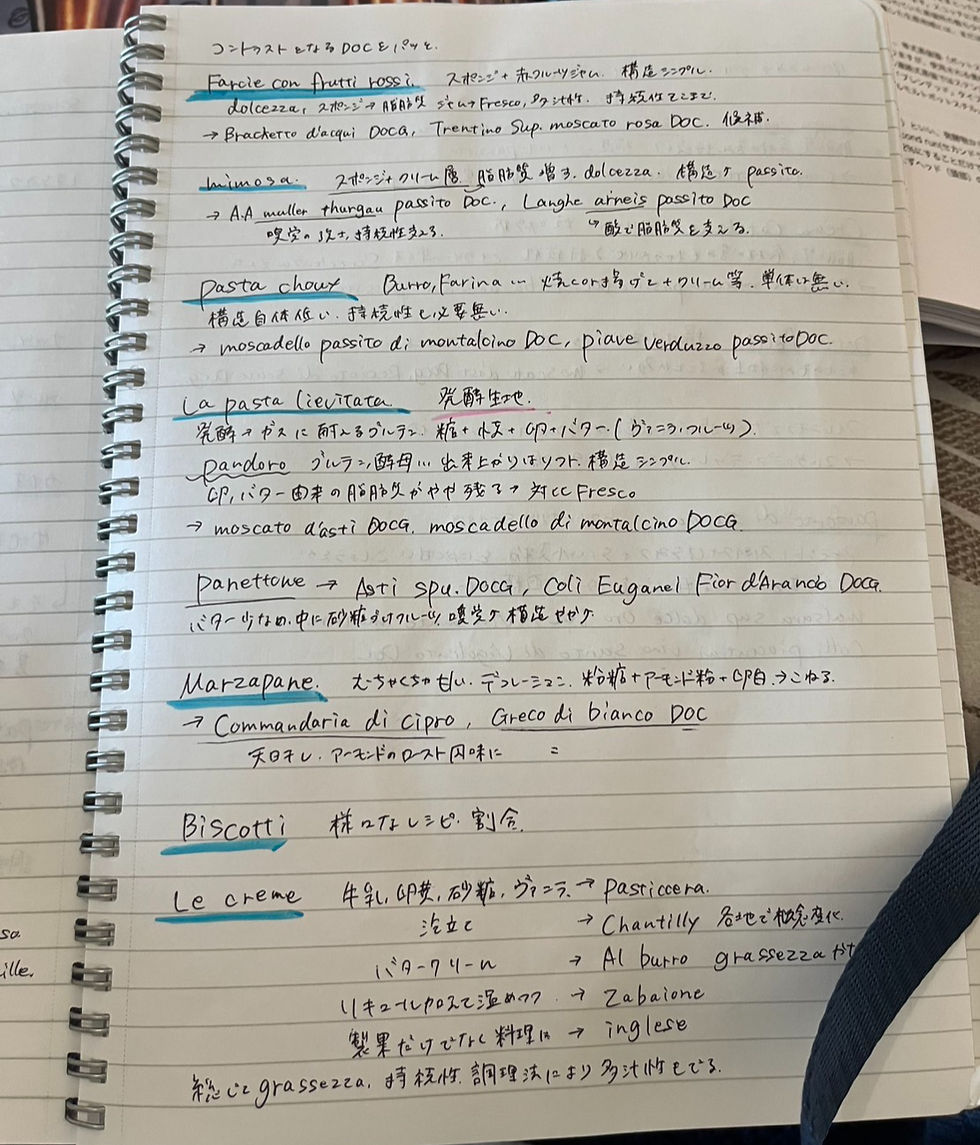 コントラストとなるDOCをパッと。
Farcie con frutti rossi. スポンジ+赤フルーツジャム. 構造シンプル.
dolcezza, スポンジ→脂肪質 ジャム→Fresco, 多汁性. 持続性そこまで.
→ Brachetto d'acqui DOCG, Trentino Sup. moscato rosa DOC. 候補.
mimosa. スポンジ+クリーム層 脂肪質増す. dolcezza. 構造↗ passito.
→ A.A muller thurgau passito DOC., Langhe arneis passito DOC
嗅覚の強さ, 持続性支える. ↳酸で脂肪質を支える.
pasta choux Burro, Farina… 焼cor揚げ+クリーム等. 単体は無い.
構造自体低い. 持続性も必要無い.
→ moscadello passito di montalcino DOC, piave verduzzo passito DOC.
La pasta lievitata 発酵生地.
発酵→ガスに耐えるグルテン. 糖+小麦+卵+バター.(ヴァニラ, フルーツ).
pandoro グルテン, 酵母… 出来上がりはソフト. 構造シンプル.
卵, バター由来の脂肪質がやや残る→対してFresco
→ moscato d'asti DOCG. moscadello di montalcino DOCG.
panettone → Asti spu. DOCG, Coli Euganel Fior d'Arancio DOCG.
バター少なめ. 中に砂糖づけフルーツ. 嗅覚↗ 構造もやや↗
Marzapane. むちゃくちゃ甘い. デコレーション. 粉糖+アーモンド粉+卵白.→こねる.
→ Commandaria di Cipro, Greco di bianco DOC
天日干し. アーモンドのロースト風味に =
Biscotti 様々なレシピ. 割合.
Le creme 牛乳, 卵黄, 砂糖, ヴァニラ. → pasticcera.
泡立て → Chantilly 各地で概念変化.
バタークリーム → Al burro grassezza
リキュール加えて温めつつ. → Zabaione
製菓だけでなく料理にも → inglese
総じてgrassezza. 持続性. 調理法により多汁性もでる.